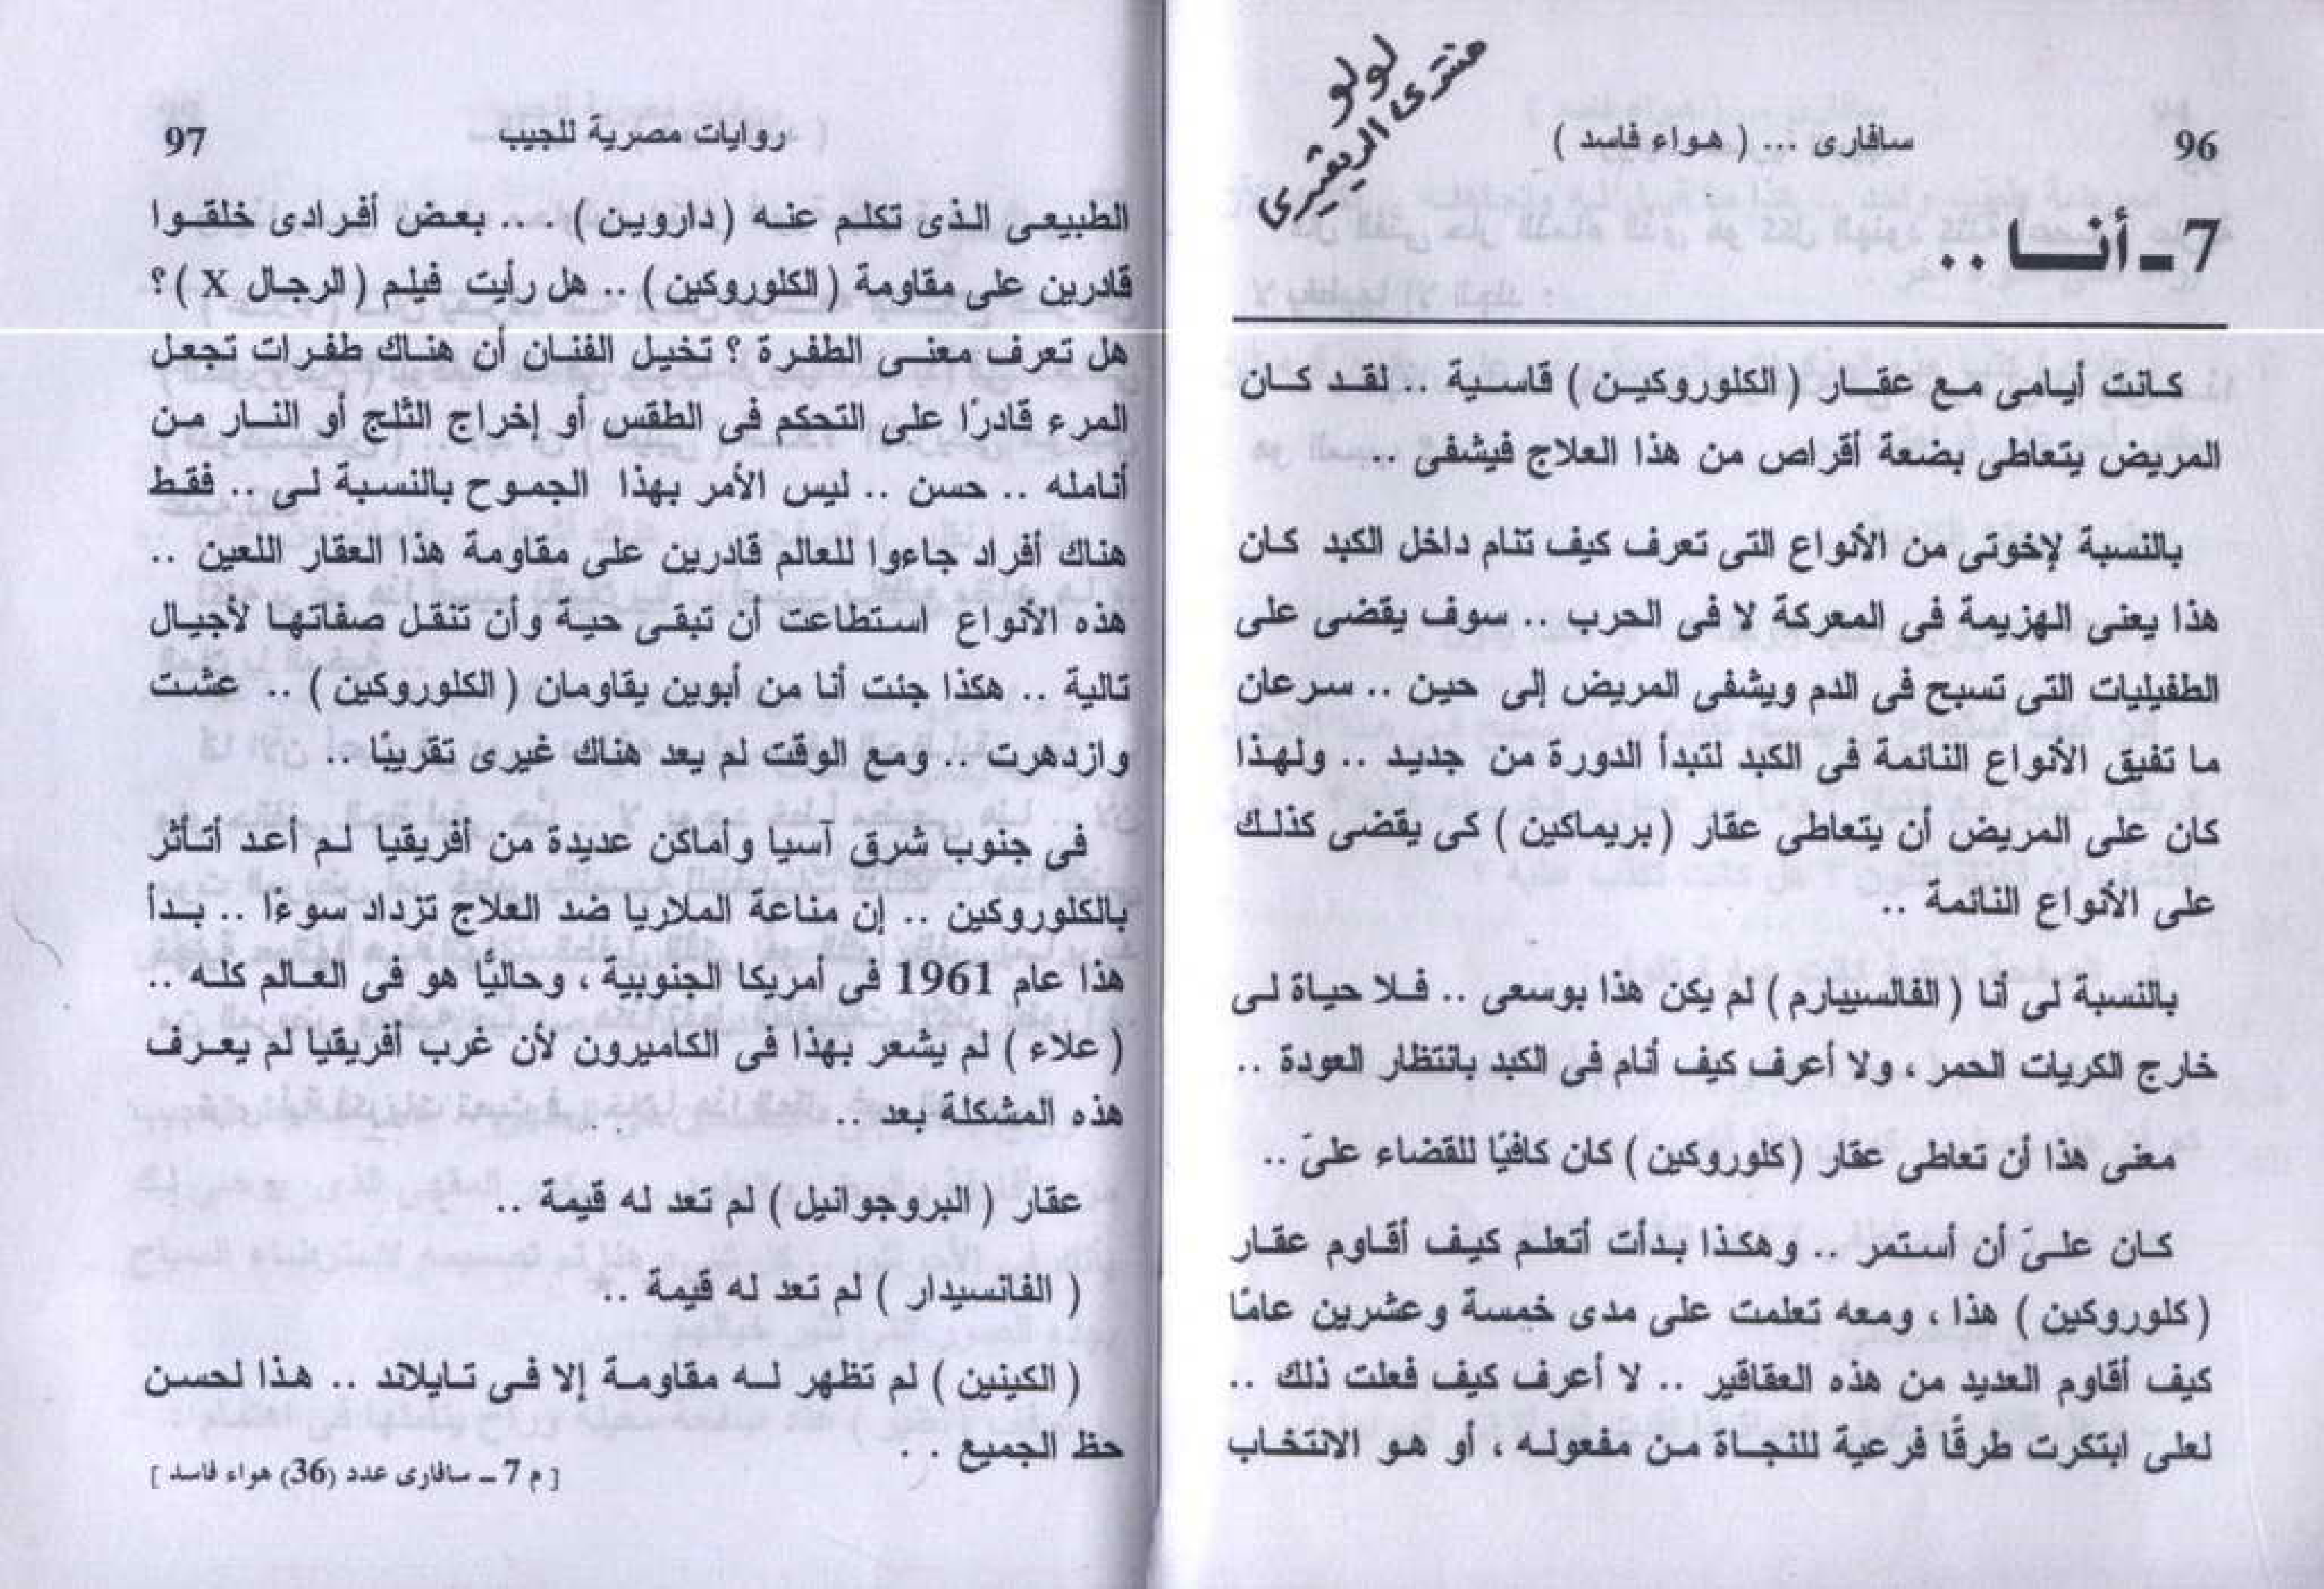 96
سافارى ... ( هواء فاسد )
لولو
منتدى الديقيرى
7 ـ أنـا ..
كانت أيامى مع عقار ( الكلوروكين ) قاسية .. لقد كان
المريض يتعاطى بضعة أقراص من هذا العلاج فيشفى ..
بالنسبة لإخوتى من الأنواع التى تعرف كيف تنام داخل الكبد كان
هذا يعنى الهزيمة فى المعركة لا فى الحرب .. سوف يقضى على
الطفيليات التى تسبح فى الدم ويشفى المريض إلى حين .. سرعان
ما تفيق الأنواع النائمة فى الكبد لتبدأ الدورة من جديد .. ولهذا
كان على المريض أن يتعاطى عقار ( بريماكين ) كى يقضى كذلك
على الأنواع النائمة ..
بالنسبة لى أنا ( الفالسيبارم ) لم يكن هذا بوسعى .. فلا حياة لى
خارج الكريات الحمر ، ولا أعرف كيف أنام فى الكبد بانتظار العودة ..
معنى هذا أن تعاطى عقار ( كلوروكين ) كان كافيًا للقضاء علىّ ..
كان علىّ أن أستمر .. وهكذا بدأت أتعلم كيف أقاوم عقار
( كلوروكين ) هذا ، ومعه تعلمت على مدى خمسة وعشرين عامًا
كيف أقاوم العديد من هذه العقاقير .. لا أعرف كيف فعلت ذلك ..
لعلى ابتكرت طرقًا فرعية للنجاة من مفعوله ، أو هو الانتخاب
روايات مصرية للجيب
97
الطبيعى الذى تكلم عنه ( داروين ) . .. بعض أفرادى خلقوا
قادرين على مقاومة ( الكلوروكين ) .. هل رأيت فيلم ( الرجال X ) ؟
هل تعرف معنى الطفرة ؟ تخيل الفنان أن هناك طفرات تجعل
المرء قادرًا على التحكم فى الطقس أو إخراج الثلج أو النار من
أنامله .. حسن .. ليس الأمر بهذا الجموح بالنسبة لى .. فقط
هناك أفراد جاءوا للعالم قادرين على مقاومة هذا العقار اللعين ..
هذه الأنواع استطاعت أن تبقى حية وأن تنقل صفاتها لأجيال
تالية .. هكذا جئت أنا من أبوين يقاومان ( الكلوروكين ) .. عشت
وازدهرت .. ومع الوقت لم يعد هناك غيرى تقريبًا ..
فى جنوب شرق آسيا وأماكن عديدة من أفريقيا لم أعد أتأثر
بالكلوروكين .. إن مناعة الملاريا ضد العلاج تزداد سوءًا .. بدأ
هذا عام 1961 فى أمريكا الجنوبية ، وحاليًا هو فى العالم كله ..
( علاء ) لم يشعر بهذا فى الكاميرون لأن غرب أفريقيا لم يعرف
هذه المشكلة بعد ..
عقار ( البروجوانيل ) لم تعد له قيمة ..
( الفانسيدار ) لم تعد له قيمة ..
( الكينين ) لم تظهر له مقاومة إلا فى تايلاند .. هذا لحسن
حظ الجميع . .
[ م 7 ـ سافارى عدد (36) هواء فاسد ]